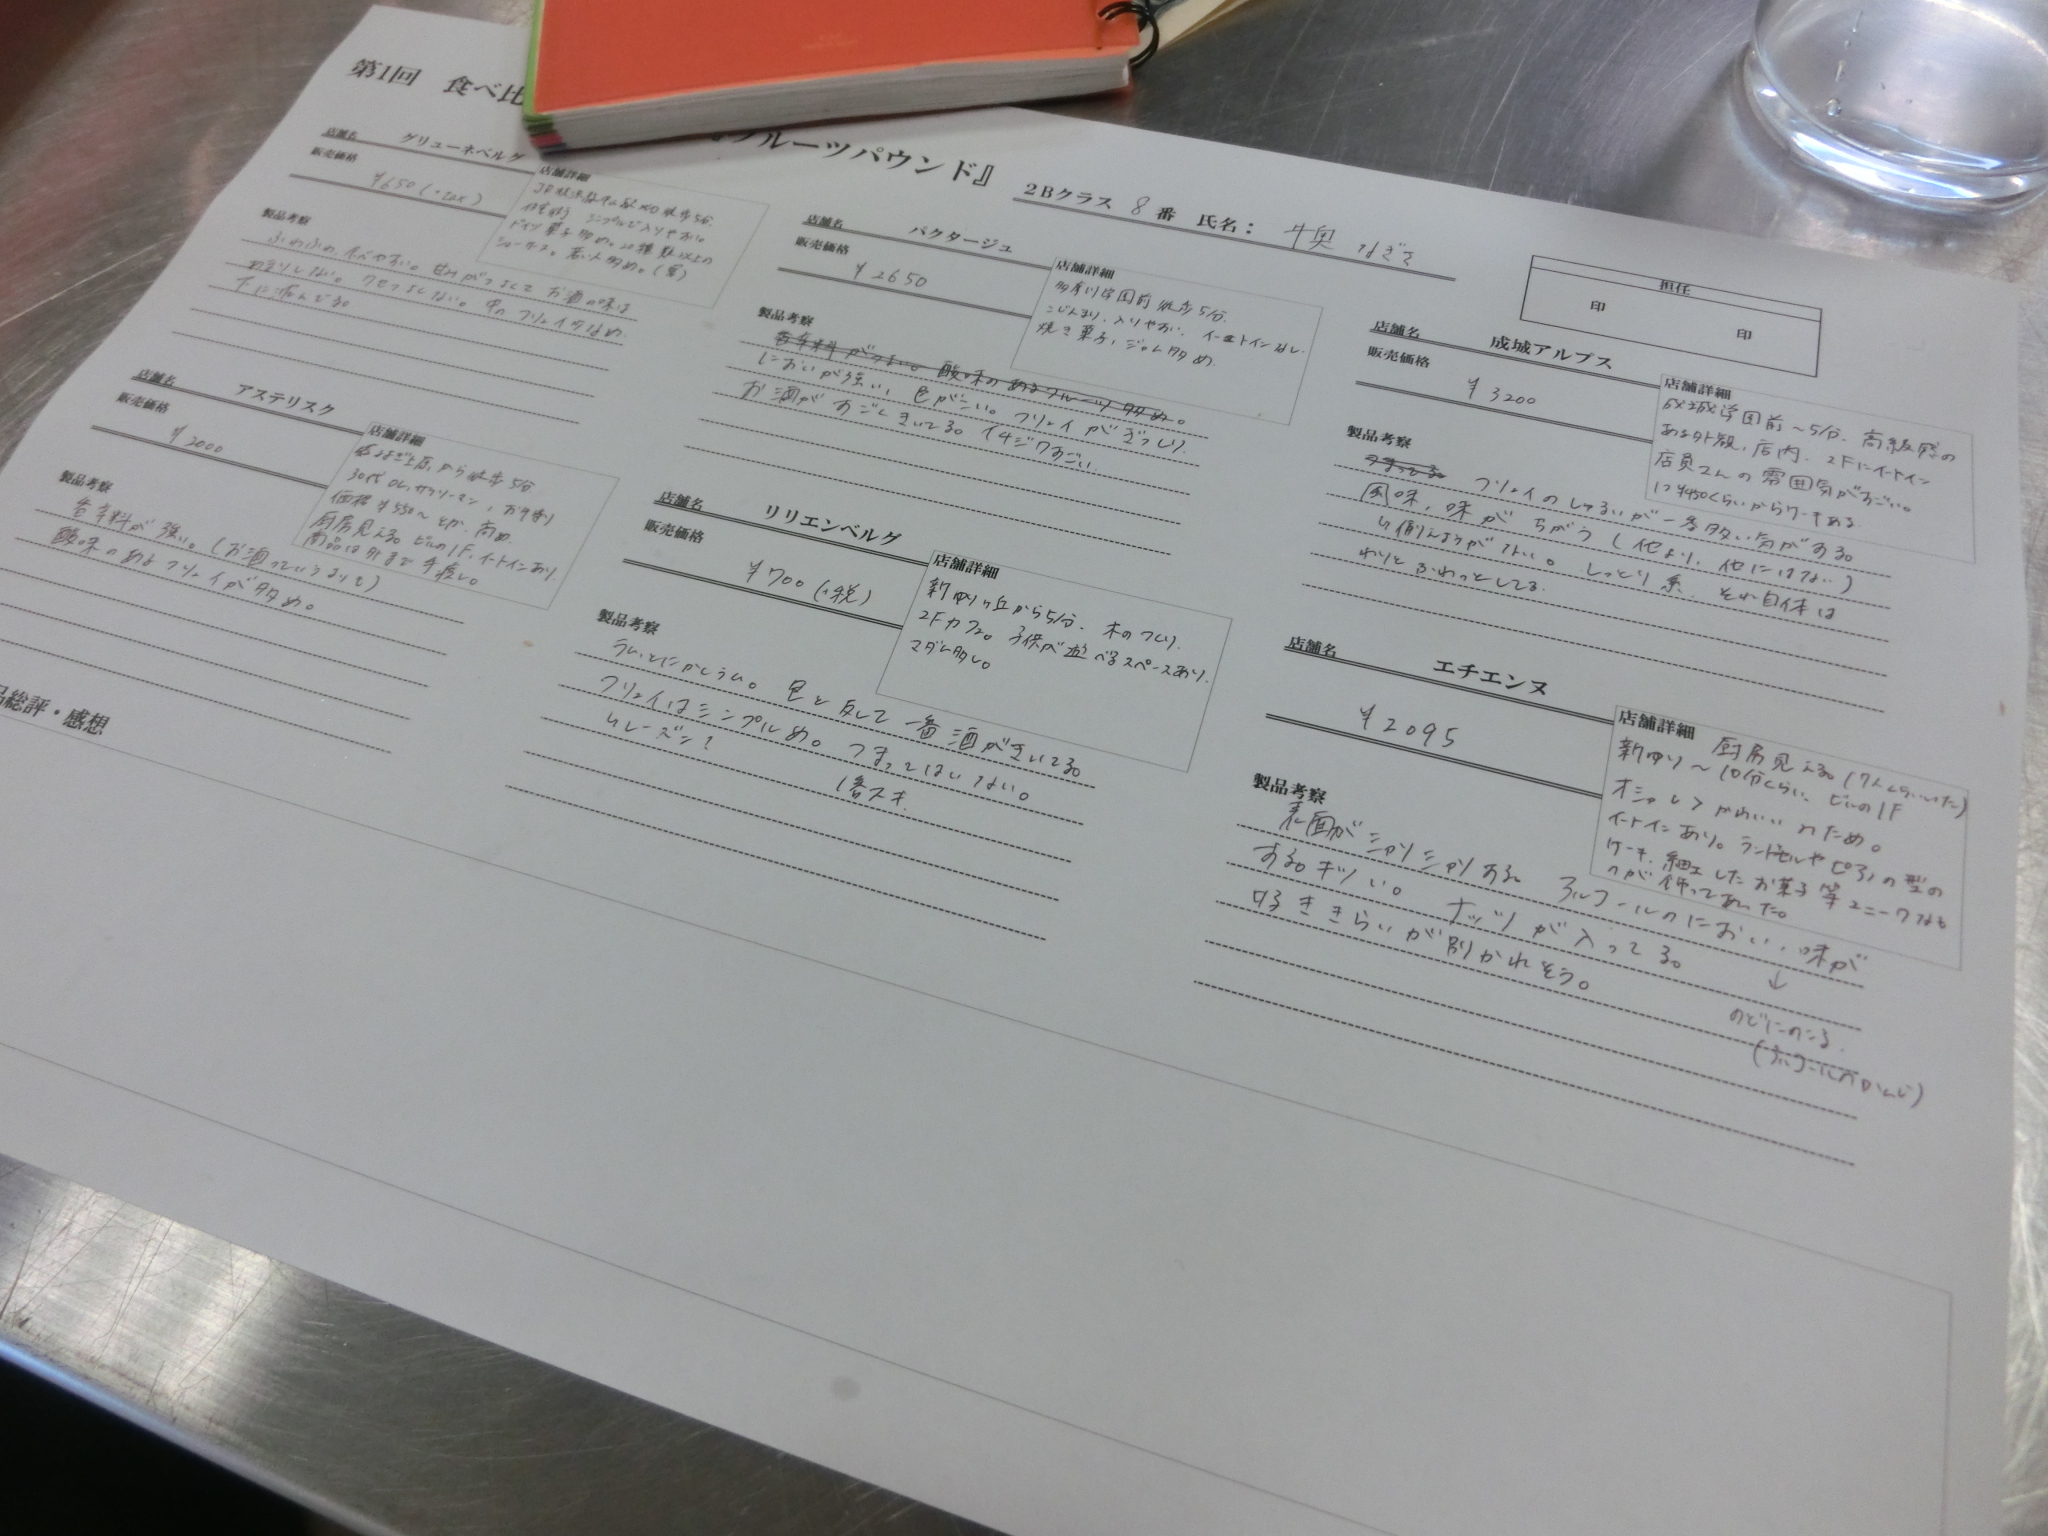 第1回 食べ比
『フルーツパウンド』
2Bクラス 8番 氏名: なぎさ
担任
印 印
店舗名 グリューネベルグ
販売価格 ¥650(+tax)
店舗詳細
徒歩5分
シンプルで入りやすい。
ドイツ菓子多め。20種類以上の
製品考察
ふわふわ、食べやすい。甘みがつよくて お酒の味は
あまりしない。クセつよくない。中の フリュイ少なめ。
下に沈んでる。
店舗名 パクタージュ
販売価格 ¥2650
店舗詳細
多摩川学園前 徒歩5分。
こじんまり、入りやすい、イートインなし。
焼き菓子、ジャム多め
製品考察
香辛料がつよい。酸味のあるフルーツ多め。
においが強い、色がこい。フリュイがぎっしり
お酒がすごくきいてる。イチジクすごい。
店舗名 成城アルプス
販売価格 ¥3200
店舗詳細
成城学園前〜5分、高級感の
ある外観、店内、2Fにイートイン
店員さんの雰囲気がすごい。
¥450くらいからケーキある
製品考察
フリュイのしゅるいが一番多い気がする。
風味、味がちがう(他より、他にはない)
しっとり系。それ自体は
わりとふわっとしてる。
店舗名 アステリスク
販売価格 ¥2000
店舗詳細
代々木上原から徒歩5分
30代OL、サラリーマン、お年寄り
価格¥550〜とか、高め
厨房見える。ビルの1F、イートインあり。
製品考察
香辛料が強い。(お酒っていうよりも)
酸味のあるフリュイが多め。
店舗名 リリエンベルグ
販売価格 ¥700(+税)
店舗詳細
新ゆりヶ丘から5分、木のつくり。
2Fカフェ。子供が遊べるスペースあり。
マダム多し。
製品考察
ラム、とにかくラム。色と反して一番酒がきいてる。
フリュイはシンプルめ。つまってはいない。
ムレーズン?
1番スキ
店舗名 エチエンヌ
販売価格 ¥2095
店舗詳細 厨房見える(7人くらいいた)
新ゆり〜10分くらい、ビルの1F
オシャレ>かわいい
イートインあり。ランドセルやピアノの型の
ケーキ、細工したお菓子等ユニークなも
のが飾ってあった。
製品考察
表面がシャリシャリある アルコールのにおい、味が
する。キツい。ナッツが入ってる。
↓
好ききらいが別かれそう。
のどにのこる。
(アルコールのかんじ)
品総評・感想